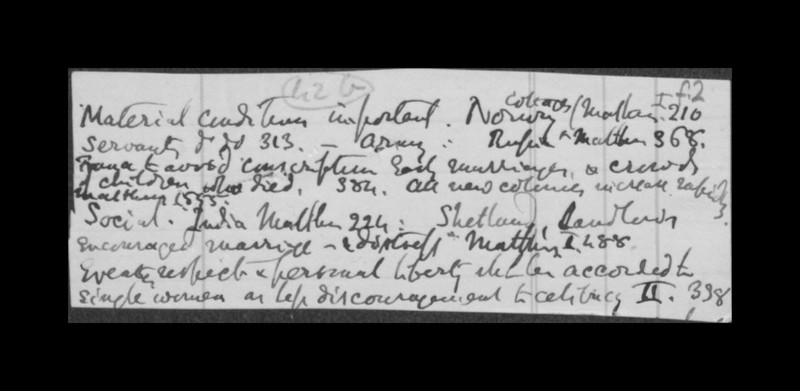 Ch 2 b
I f.2
Material conditions important. Norway (Malthus I. 210
Servants do do 313. – army : Malthus 368.
France to avoid conscription Early marriages, & crowds
of children who died, 384. All new colonies increase rapidly
Malthus
Social. India Malthus 224 : Shetland, Landlords
encouraged marriage – & distress " Malthus I 488
Greater respect & personal liberty shd be accorded to
single women as less discouragement to celibacy II. 398